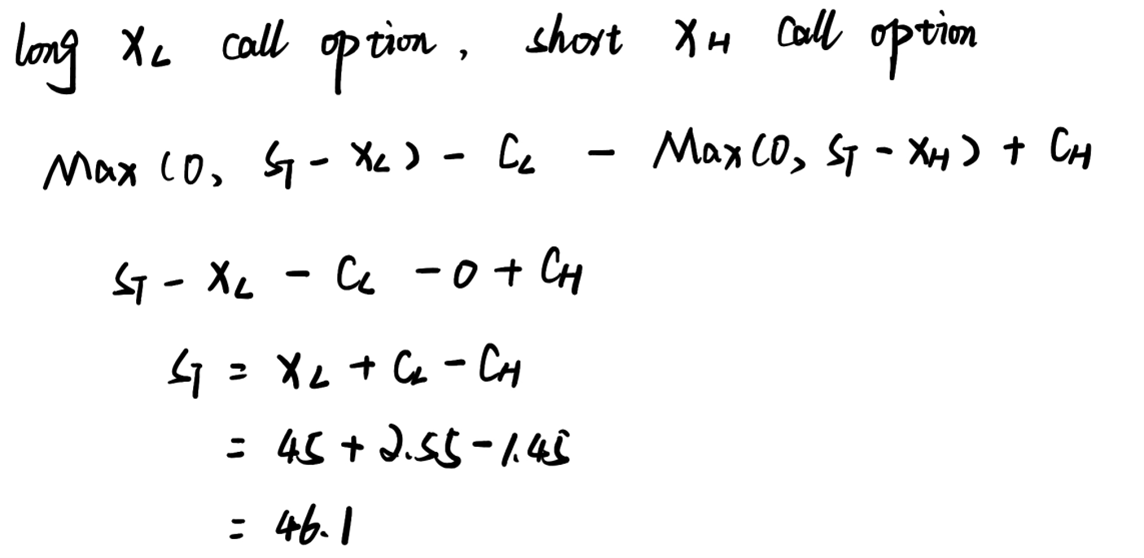 long X_L call option, short X_H call option
Max (0, S_T - X_L) - C_L - Max (0, S_T - X_H) + C_H
S_T - X_L - C_L - 0 + C_H
S_T = X_L + C_L - C_H
= 45 + 2.55 - 1.45
= 46.1